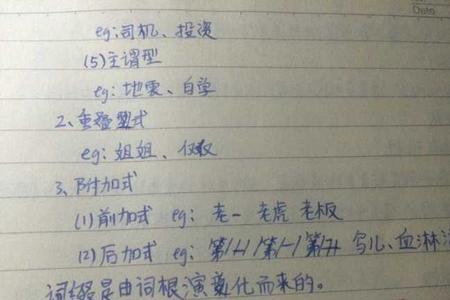 eg:司机、投资
(5)主谓型
eg:地震、自学
2、重叠型式
eg:姐姐、仅仅
3、附加式
(1)前加式 eg:老一 老虎 老板
(2)后加式 eg: 鸟儿、血淋
词缀是由词根演化而来的。